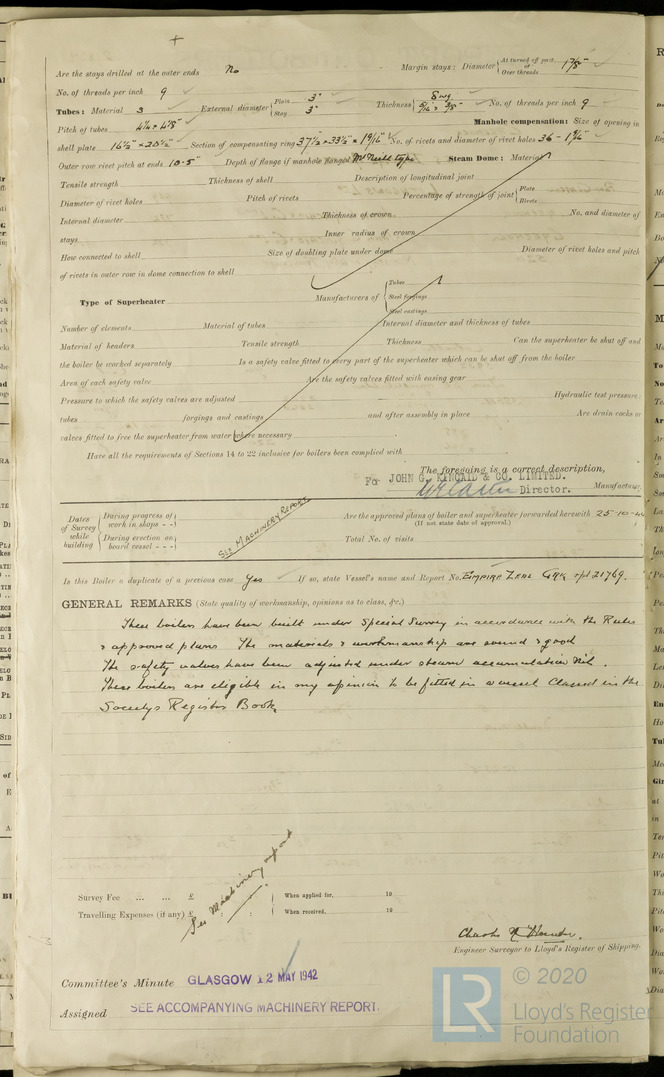 Are the stays drilled at the outer ends No Margin stays: Diameter { At turned off part, or Over threads 1 7/8"
No. of threads per inch 9
Tubes: Material S External diameter { Plain 3" Stay 3" Thickness { 8 wg 5/16" & 3/8" No. of threads per inch 9
Pitch of tubes 4 1/4" x 4 1/8" Manhole compensation: Size of opening in
shell plate 16 1/2" x 20 1/2" Section of compensating ring 37 1/2 x 33 1/2" x 1 9/16" No. of rivets and diameter of rivet holes 36 -
Outer row rivet pitch at ends 10.5" Depth of flange if manhole flanged McNeill type Steam Dome: Material
Tensile strength Thickness of shell Description of longitudinal joint
Diameter of rivet holes Pitch of rivets Percentage of strength of joint { Plate Rivets
Internal diameter Thickness of crown No. and diameter of
stays Inner radius of crown
How connected to shell Size of doubling plate under dome Diameter of rivet holes and pitch
of rivets in outer row in dome connection to shell
Type of Superheater Manufacturers of { Tubes Steel forgings Steel castings
Number of elements Material of tubes Internal diameter and thickness of tubes
Material of headers Tensile strength Thickness Can the superheater be shut off and
the boiler be worked separately Is a safety valve fitted to every part of the superheater which can be shut off from the boiler
Area of each safety valve Are the safety valves fitted with easing gear
Pressure to which the safety valves are adjusted Hydraulic test pressure:
tubes forgings and castings and after assembly in place Are drain cocks or
valves fitted to free the superheater from water where necessary
Have all the requirements of Sections 14 to 22 inclusive for boilers been complied with
The foregoing is a correct description,
For JOHN G. KINCAID & CO. LIMITED.
Director. Manufactur
Dates of Survey while building { During progress of work in shops - - During erection on board vessel - - - SEE MACHINERY REPORT
Are the approved plans of boiler and superheater forwarded herewith 25-10-
(If not state date of approval.)
Total No. of visits
Is this Boiler a duplicate of a previous case Yes If so, state Vessel's name and Report No. EMPIRE ZEAL GRK rpt 21769.
GENERAL REMARKS (State quality of workmanship, opinions as to class, &c.)
These boilers have been built under Special Survey in accordance with the Rules
& approved plans. The materials & workmanship are sound & good
The safety valves have been adjusted under steam accumulation Nil.
These boilers are eligible in my opinion to be fitted in a vessel Classed in the
Societys Register Book.
Survey Fee ... ... £ : : When applied for, 19
Travelling Expenses (if any) £ : : When received, 19
See Machinery report
Charles Hunter.
Engineer Surveyor to Lloyd's Register of Shipping.
Committee's Minute GLASGOW 12 MAY 1942
Assigned SEE ACCOMPANYING MACHINERY REPORT.
LR © 2020
Lloyd's Register
Foundation